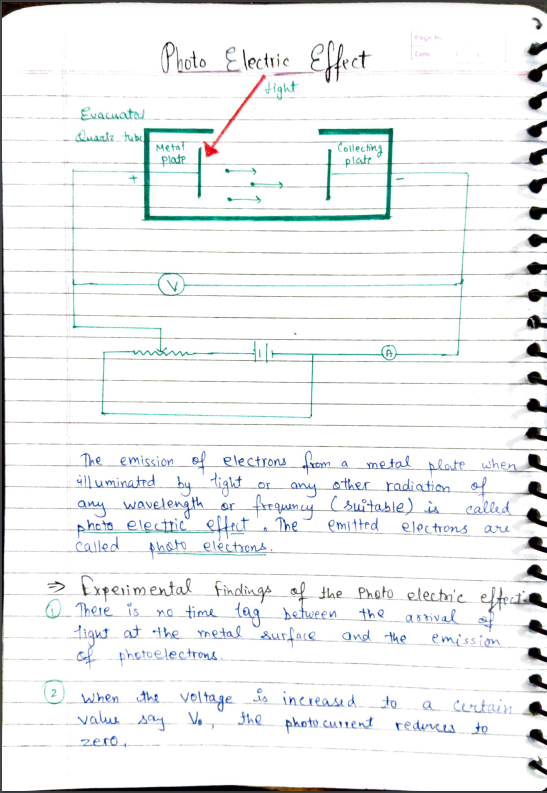 Page No.
Date
Photo Electric Effect
Light
Evacuated
Quartz tube
Metal
plate
Collecting
plate
+
-
V
A
The emission of electrons from a metal plate when
illuminated by light or any other radiation of
any wavelength or frequency (suitable) is called
photo electric effect. The emitted electrons are
called photo electrons.
⇒ Experimental findings of the Photo electric effect:
① There is no time lag between the arrival of
light at the metal surface and the emission
of photoelectrons.
② When the voltage is increased to a certain
value say V₀, the photocurrent reduces to
zero.